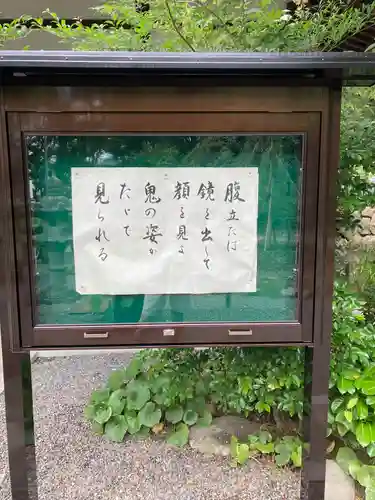 腹立たば
鏡を出して
顔を見よ
鬼の姿が
たゞで
見られる